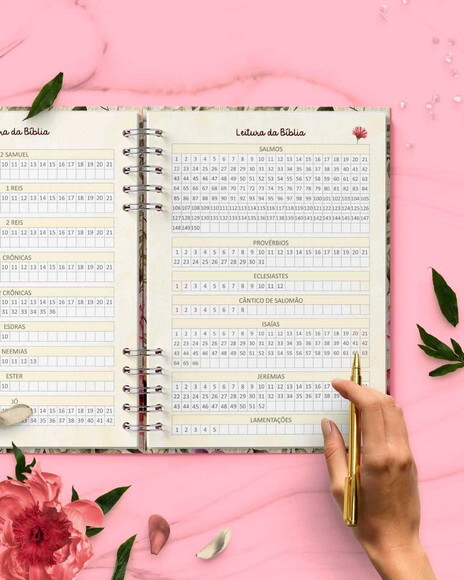 ra da Bíblia
2 SAMUEL
10 11 12 13 14 15 16 17 18 19 20 21
1 REIS
10 11 12 13 14 15 16 17 18 19 20 21
2 REIS
10 11 12 13 14 15 16 17 18 19 20 21
CRÔNICAS
10 11 12 13 14 15 16 17 18 19 20 21
CRÔNICAS
10 11 12 13 14 15 16 17 18 19 20 21
31 32 33 34 35 36
ESDRAS
NEEMIAS
10 11 12 13
ESTER
10
JÓ
11 12 13 14 15 16 17 18 19 20 21
32 33 34 35 36 37 38 39 40 41 42
Leitura da Bíblia
SALMOS
1 2 3 4 5 6 7 8 9 10 11 12 13 14 15 16 17 18 19 20 21
22 23 24 25 26 27 28 29 30 31 32 33 34 35 36 37 38 39 40 41 42
43 44 45 46 47 48 49 50 51 52 53 54 55 56 57 58 59 60 61 62 63
64 65 66 67 68 69 70 71 72 73 74 75 76 77 78 79 80 81 82 83 84
85 86 87 88 89 90 91 92 93 94 95 96 97 98 99 100 101 102 103 104 105
106 107 108 109 110 111 112 113 114 115 116 117 118 119 120 121 122 123 124 125 126
127 128 129 130 131 132 133 134 135 136 137 138 139 140 141 142 143 144 145 146 147
148 149 150
PROVÉRBIOS
1 2 3 4 5 6 7 8 9 10 11 12 13 14 15 16 17 18 19 20 21
22 23 24 25 26 27 28 29 30 31
ECLESIASTES
1 2 3 4 5 6 7 8 9 10 11 12
CÂNTICO DE SALOMÃO
1 2 3 4 5 6 7 8
ISAÍAS
1 2 3 4 5 6 7 8 9 10 11 12 13 14 15 16 17 18 19 20 21
22 23 24 25 26 27 28 29 30 31 32 33 34 35 36 37 38 39 40 41 42
43 44 45 46 47 48 49 50 51 52 53 54 55 56 57 58 59 60 61 63
64 65 66
JEREMIAS
1 2 3 4 5 6 7 8 9 10 11 12 13 14 15 16 17 18
22 23 24 25 26 27 28 29 30 31 32 33 34 35 36 37 38 39
43 44 45 46 47 48 49 50 51 52
LAMENTAÇÕES
1 2 3 4 5